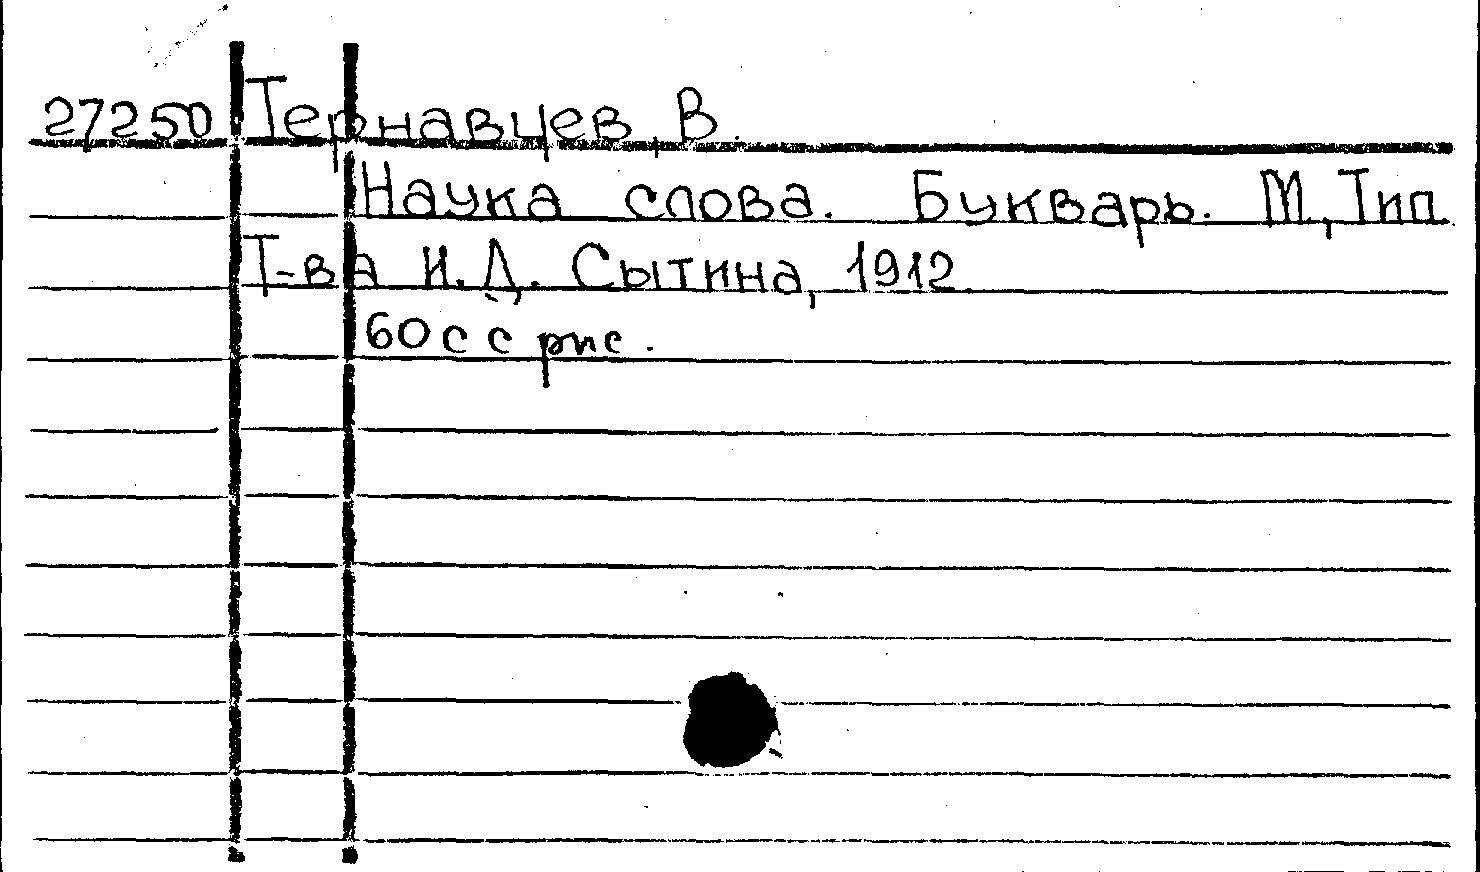 27250 Тернавцев, В.
Наука слова. Букварь. М., Тип.
Т-ва И.Д. Сытина, 1912.
60 с с рис.